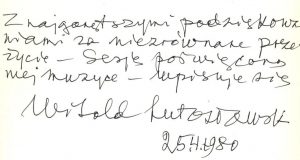 Z najgorętszymi podziękowa
niami za niezrównane prze
życie – Sesję poświęconą
mej muzyce – wpisuję się
Witold Lutosławski
25.II.1980